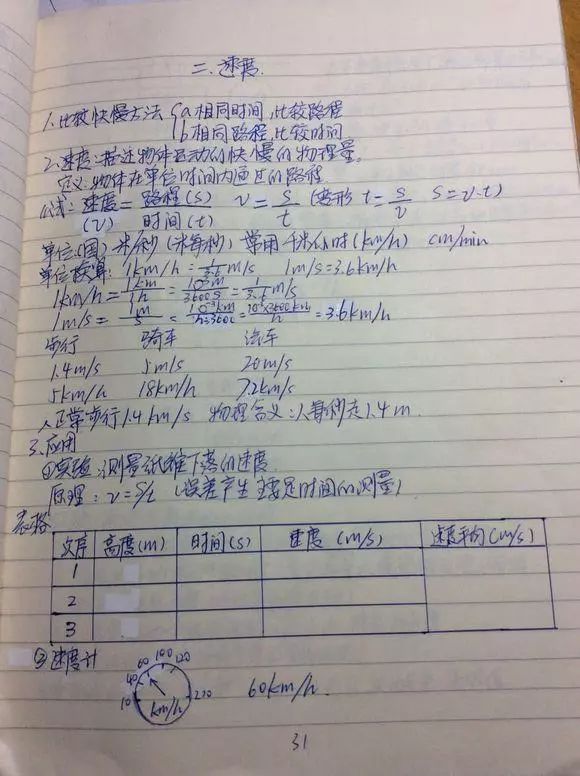 二.速度.
1.比较快慢方法 { a 相同时间,比较路程
b 相同路程,比较时间
2.速度:描述物体运动的快慢的物理量。
定义:物体在单位时间内通过的路程
公式:速度(v) = 路程(s)/时间(t) v = s/t (变形 t = s/v s = v·t)
单位(国) 米/秒 (米每秒) 常用 千米/小时 (km/h) cm/min
单位换算: 1km/h = 1/3.6 m/s 1m/s = 3.6km/h
1km/h = 1km/1h = 10³m/3600s = 1/3.6 m/s
1m/s = m/s = = 3.6km/h
步行 骑车 汽车
1.4m/s 5m/s 20m/s
5km/h 18km/h 72km/h
人正常步行1.4km/s 物理含义:人每秒走1.4m.
3.应用
①实验:测量纸锥下落的速度
原理:v=s/t (误差产生主要是时间的测量)
表格
次序 高度(m) 时间(s) 速度(m/s) 速度平均(m/s)
1
2
3
②速度计
10 40 60 100 120 220 km/h 60km/h.
31